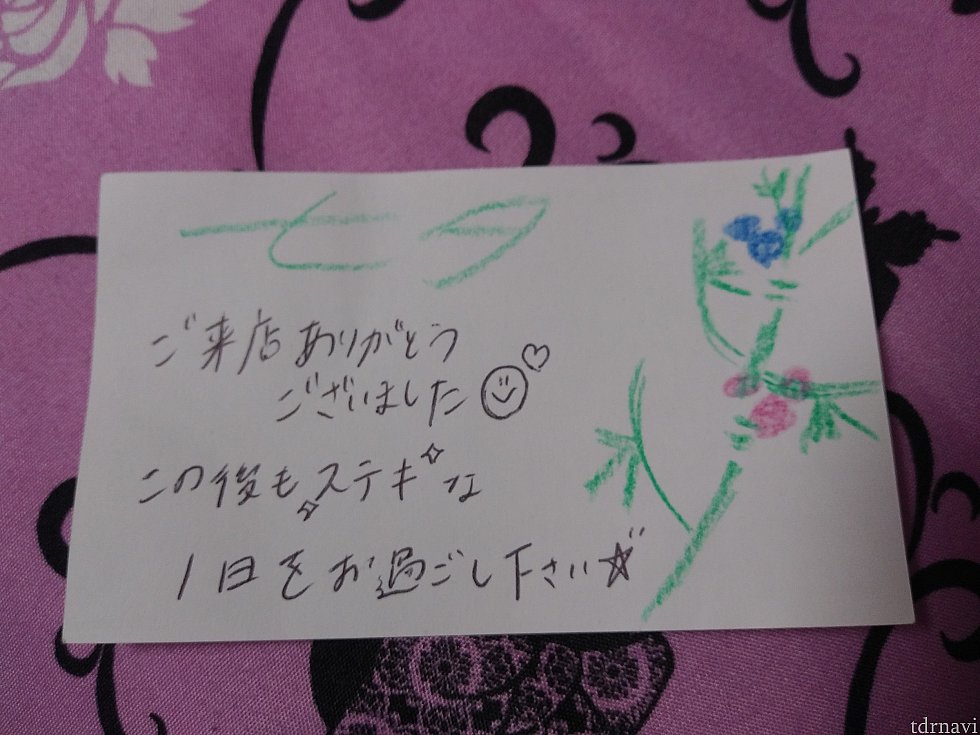 七夕
ご来店ありがとう
ございました
この後もステキな
1日をお過ごし下さい
tdrnavi